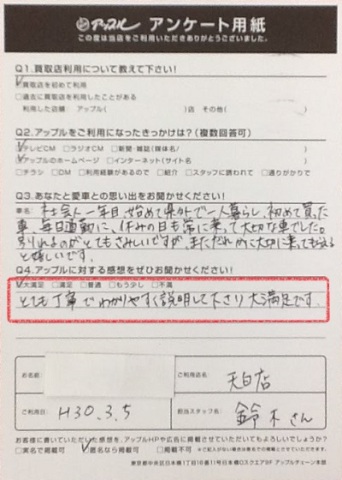 アップル アンケート用紙
この度は当店をご利用いただきありがとうございました。
Q1.買取店利用について教えて下さい!
☑買取店を初めて利用
□過去に買取店を利用したことがある
利用した店舗 アップル( )店 その他( )
Q2.アップルをご利用になったきっかけは?(複数回答可)
☑テレビCM □ラジオCM □新聞・雑誌(媒体名/ )
☑アップルのホームページ □インターネット(サイト名 )
□チラシ □DM □利用経験があるので □紹介 □スタッフに誘われて □通りがかりで
Q3.あなたと愛車との思い出をお聞かせください!
車名:
社会人一年目、始めて県外で一人暮らし、初めて買った
車、毎日通勤に、休みの日も常に乗って大切な車でした。
別れるのがとてもさみしいですが、まただれかに大切に乗ってもらえる
と嬉しいです。
Q4.アップルに対する感想をぜひお聞かせください!
☑大満足 □満足 □普通 □もう少し □不満
とても丁寧でわかりやすく説明して下さり大満足です。
お名前
ご利用店名
天白店
ご利用日
H30.3.5
担当スタッフ名
鈴木さん
お客様に書いていただいた感想を、アップルHPや広告に掲載させていただいてもよろしいでしょうか?
□実名で掲載可 ☑匿名なら掲載可 □掲載不可
東京都中央区日本橋1丁目16番11号日本橋Dスクエア5F アップルチェーン本部